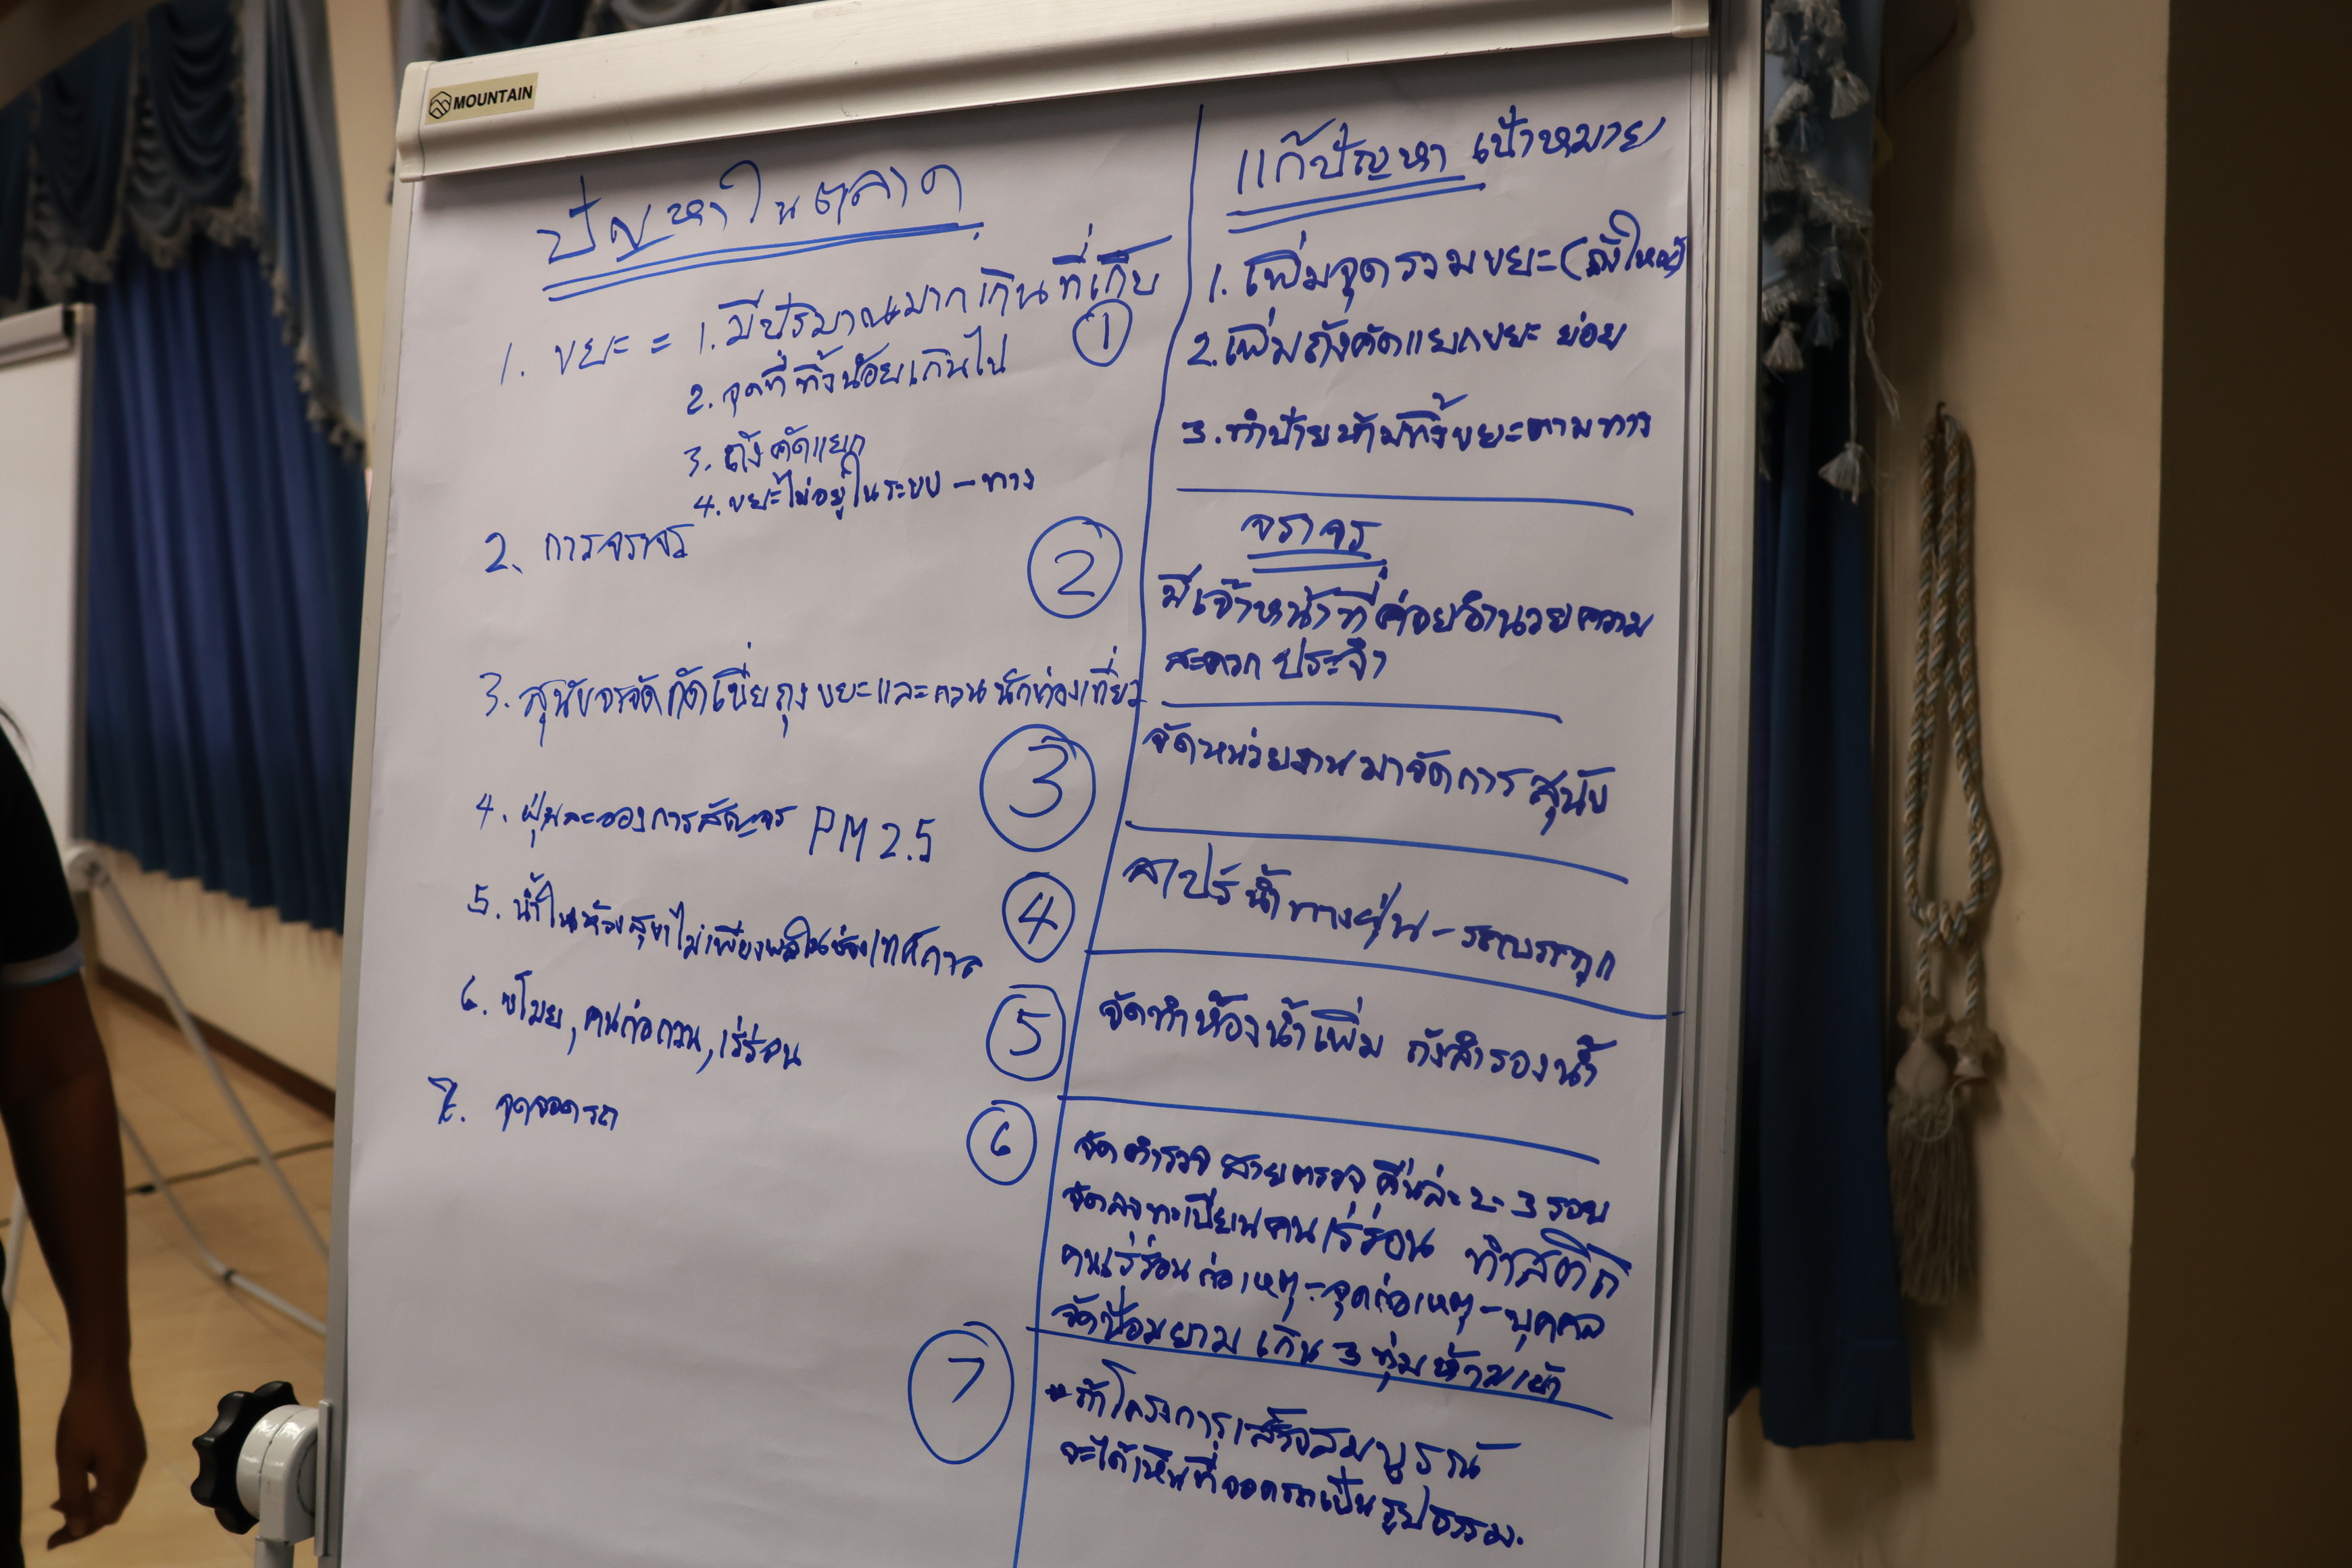 MOUNTAIN
ปัญหาในตลาด
1. ขยะ = 1. มีปริมาณมากเกินที่เก็บ
2. จุดที่ทิ้งน้อยเกินไป
3. ถังคัดแยก
4. ขยะไม่อยู่ในระบบ - ทาง
2. การจราจร
3. สุนัขจรจัดกัดเขี่ยถุงขยะและกวนนักท่องเที่ยว
4. ฝุ่นละอองการสัญจร PM 2.5
5. น้ำในห้องสุขาไม่เพียงพอในช่วงเทศกาล
6. ขโมย, คนก่อกวน, เร่ร่อน
7. จุดจอดรถ
แก้ปัญหา เป้าหมาย
①
1. เพิ่มจุดรวมขยะ (ถังใหญ่)
2. เพิ่มถังคัดแยกขยะ ย่อย
3. ทำป้ายห้ามทิ้งขยะตามทาง
②
จราจร
มีเจ้าหน้าที่ค่อยอำนวยความ
สะดวก ประจำ
③
จัดหน่วยงานมาจัดการสุนัข
④
สเปร์น้ำทางฝุ่น - รถบรรทุก
⑤
จัดทำห้องน้ำเพิ่ม ถังสำรองน้ำ
⑥
จัดตำรวจ สายตรวจ คืนล่ะ 2-3 รอบ
จัดลงทะเบียนคนเร่ร่อน ทำสถิติ
คนเร่ร่อนก่อเหตุ - จุดก่อเหตุ - บุคคล
จัดป้อมยาม เกิน 3 ทุ่มห้ามเข้า
⑦
ถ้าโครงการเสร็จสมบูรณ์
จะได้เห็นที่จอดรถเป็นรูปธรรม.